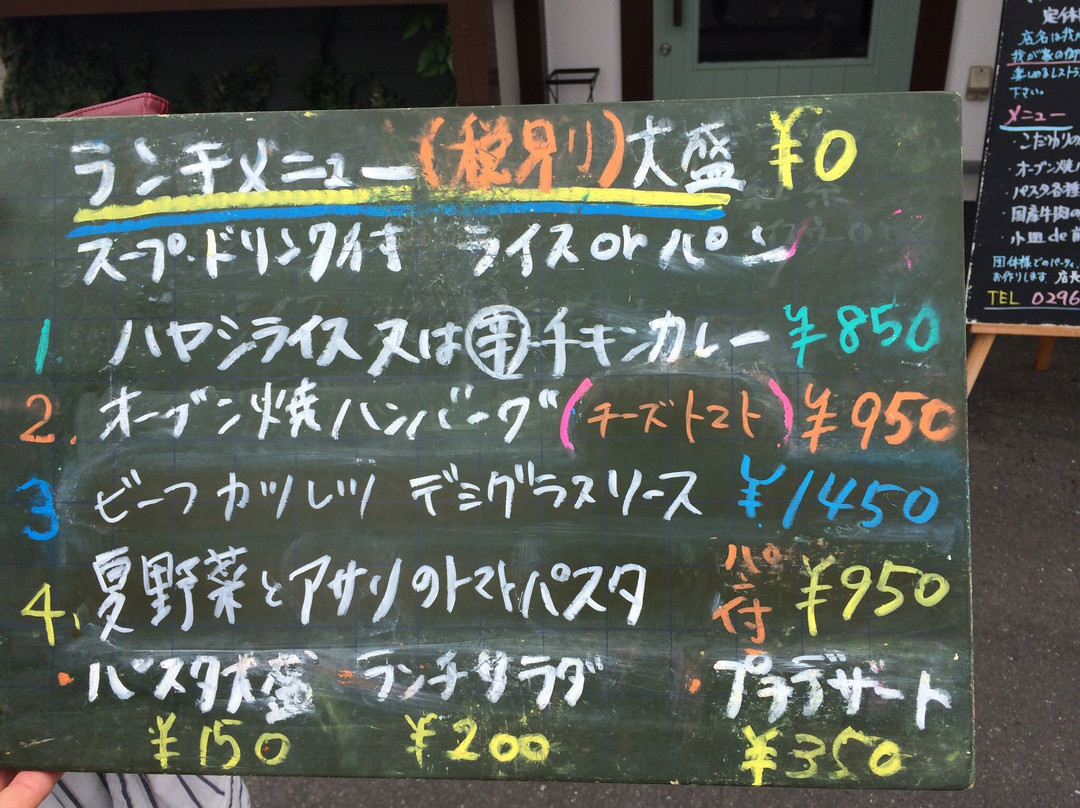 ランチメニュー(税別)大盛 ¥0
スープ・ドリンク付 ライス or パン
1. ハヤシライス又は㊛チキンカレー ¥850
2. オーブン焼ハンバーグ(チーズトマト) ¥950
3 ビーフカツレツ デミグラスソース ¥1450
4. 夏野菜とアサリのトマトパスタ パン付 ¥950
・パスタ大盛 ・ランチサラダ ・プチデザート
¥150 ¥200 ¥350
定休
店名は我が
我が家の御
楽しめるレストラ
下さい。
メニュー
・こだわりの
・オーブン焼ハ
・パスタ各種
・国産牛肉の
・小皿de前
団体様でのパーティ
お作りします 店長
TEL 0296